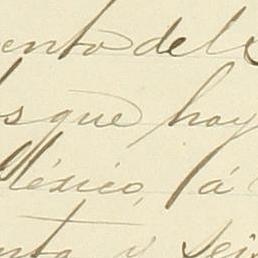 ento del
s que hoy
México, á
nta y sei